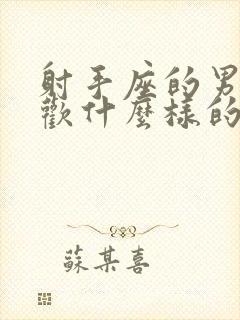 射手座的男
歡什麼樣的
蘇某喜